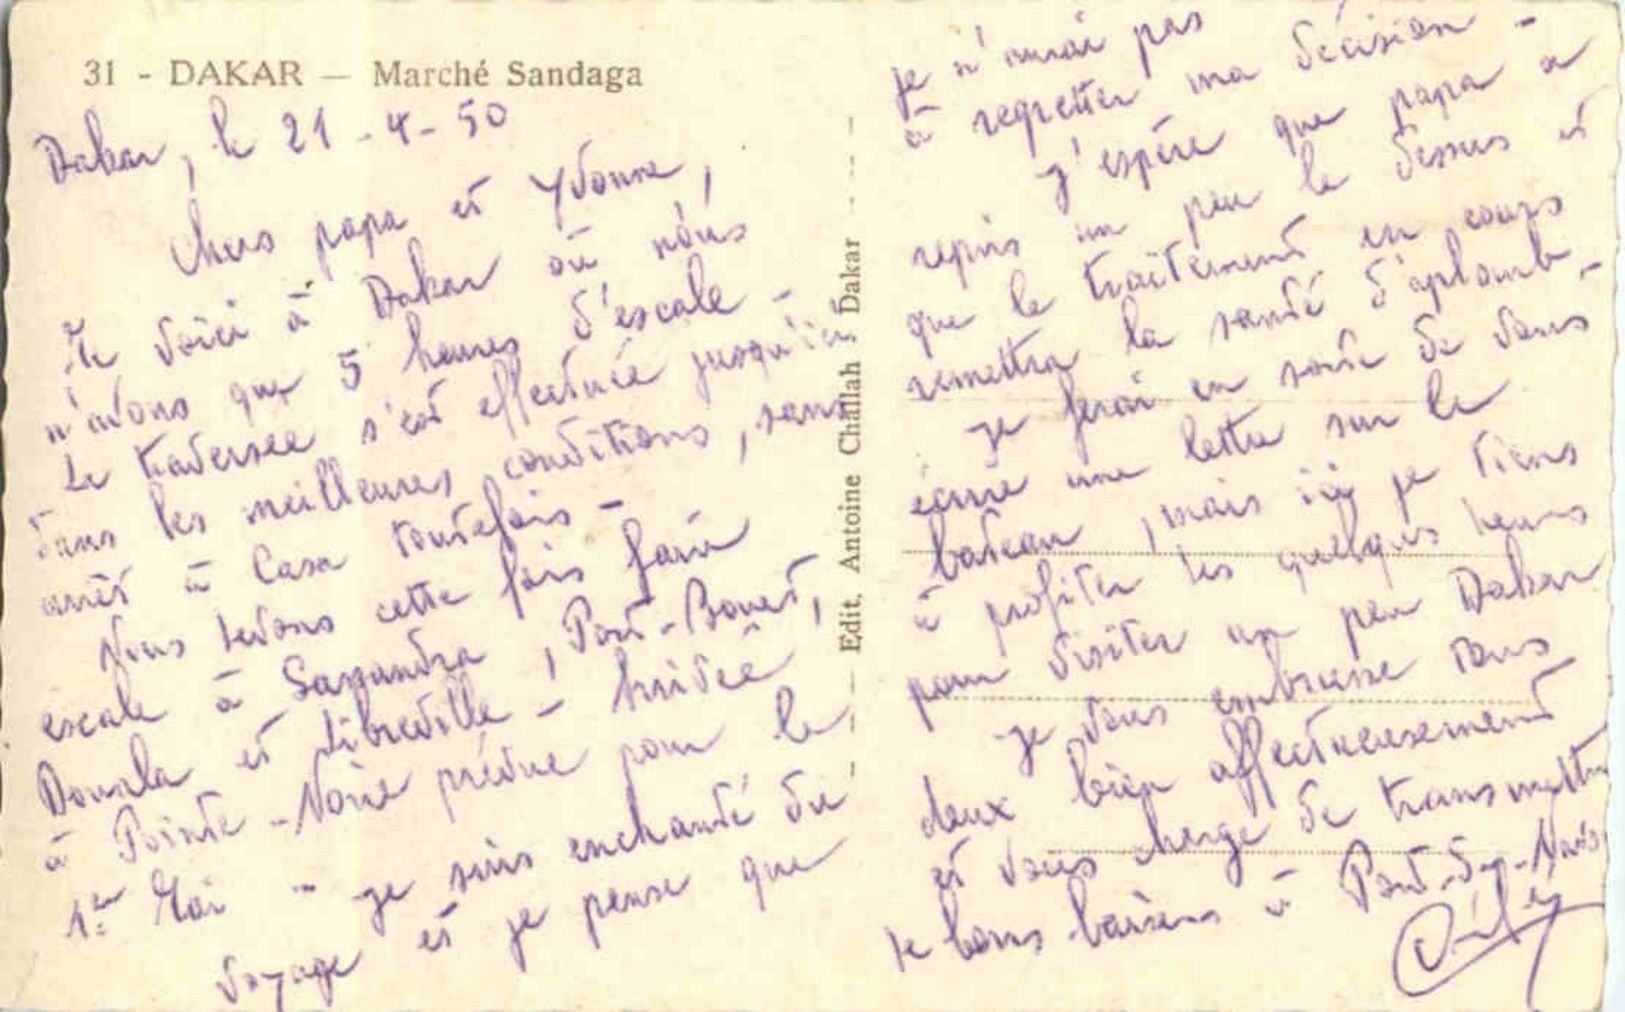 31 - DAKAR — Marché Sandaga
Dakar, le 21-4-50
Chers papa et Yvonne,
Me voici à Dakar où nous
n'avons que 5 heures d'escale -
La traversée s'est effectuée jusqu'ici
dans les meilleures conditions, sans
arrêt à Casa toutefois -
Nous devons cette fois faire
escale à Sassandra, Port-Bouet,
Douala et Libreville - Arrivée
à Pointe-Noire prévue pour le
1er Mai - je suis enchanté du
voyage et je pense que
Edit. Antoine Challah, Dakar
je n'aurai pas
à regretter ma décision -
J'espère que papa a
repris un peu le dessus et
que le traitement en cours
remettra la santé d'aplomb -
je ferai en sorte de vous
écrire une lettre sur le
bateau, mais ici je tiens
à profiter des quelques heures
pour visiter un peu Dakar
je vous embrasse tous
deux bien affectueusement
et vous charge de transmettre
de bons baisers à